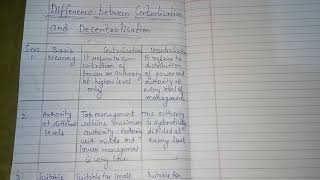 Difference between Centralisation
and Decentralisation
S.no. Basis Centralisation Decentralisation
1. Meaning It refers to con- It refers to
of power and
authority at
at higher level every level of
only management
2. Authority Top management The authority
at different retains maximum is systematically
levels authority divided at
and middle and every level
lower management
is very low
3. Suitable Suitable for small Suitable for